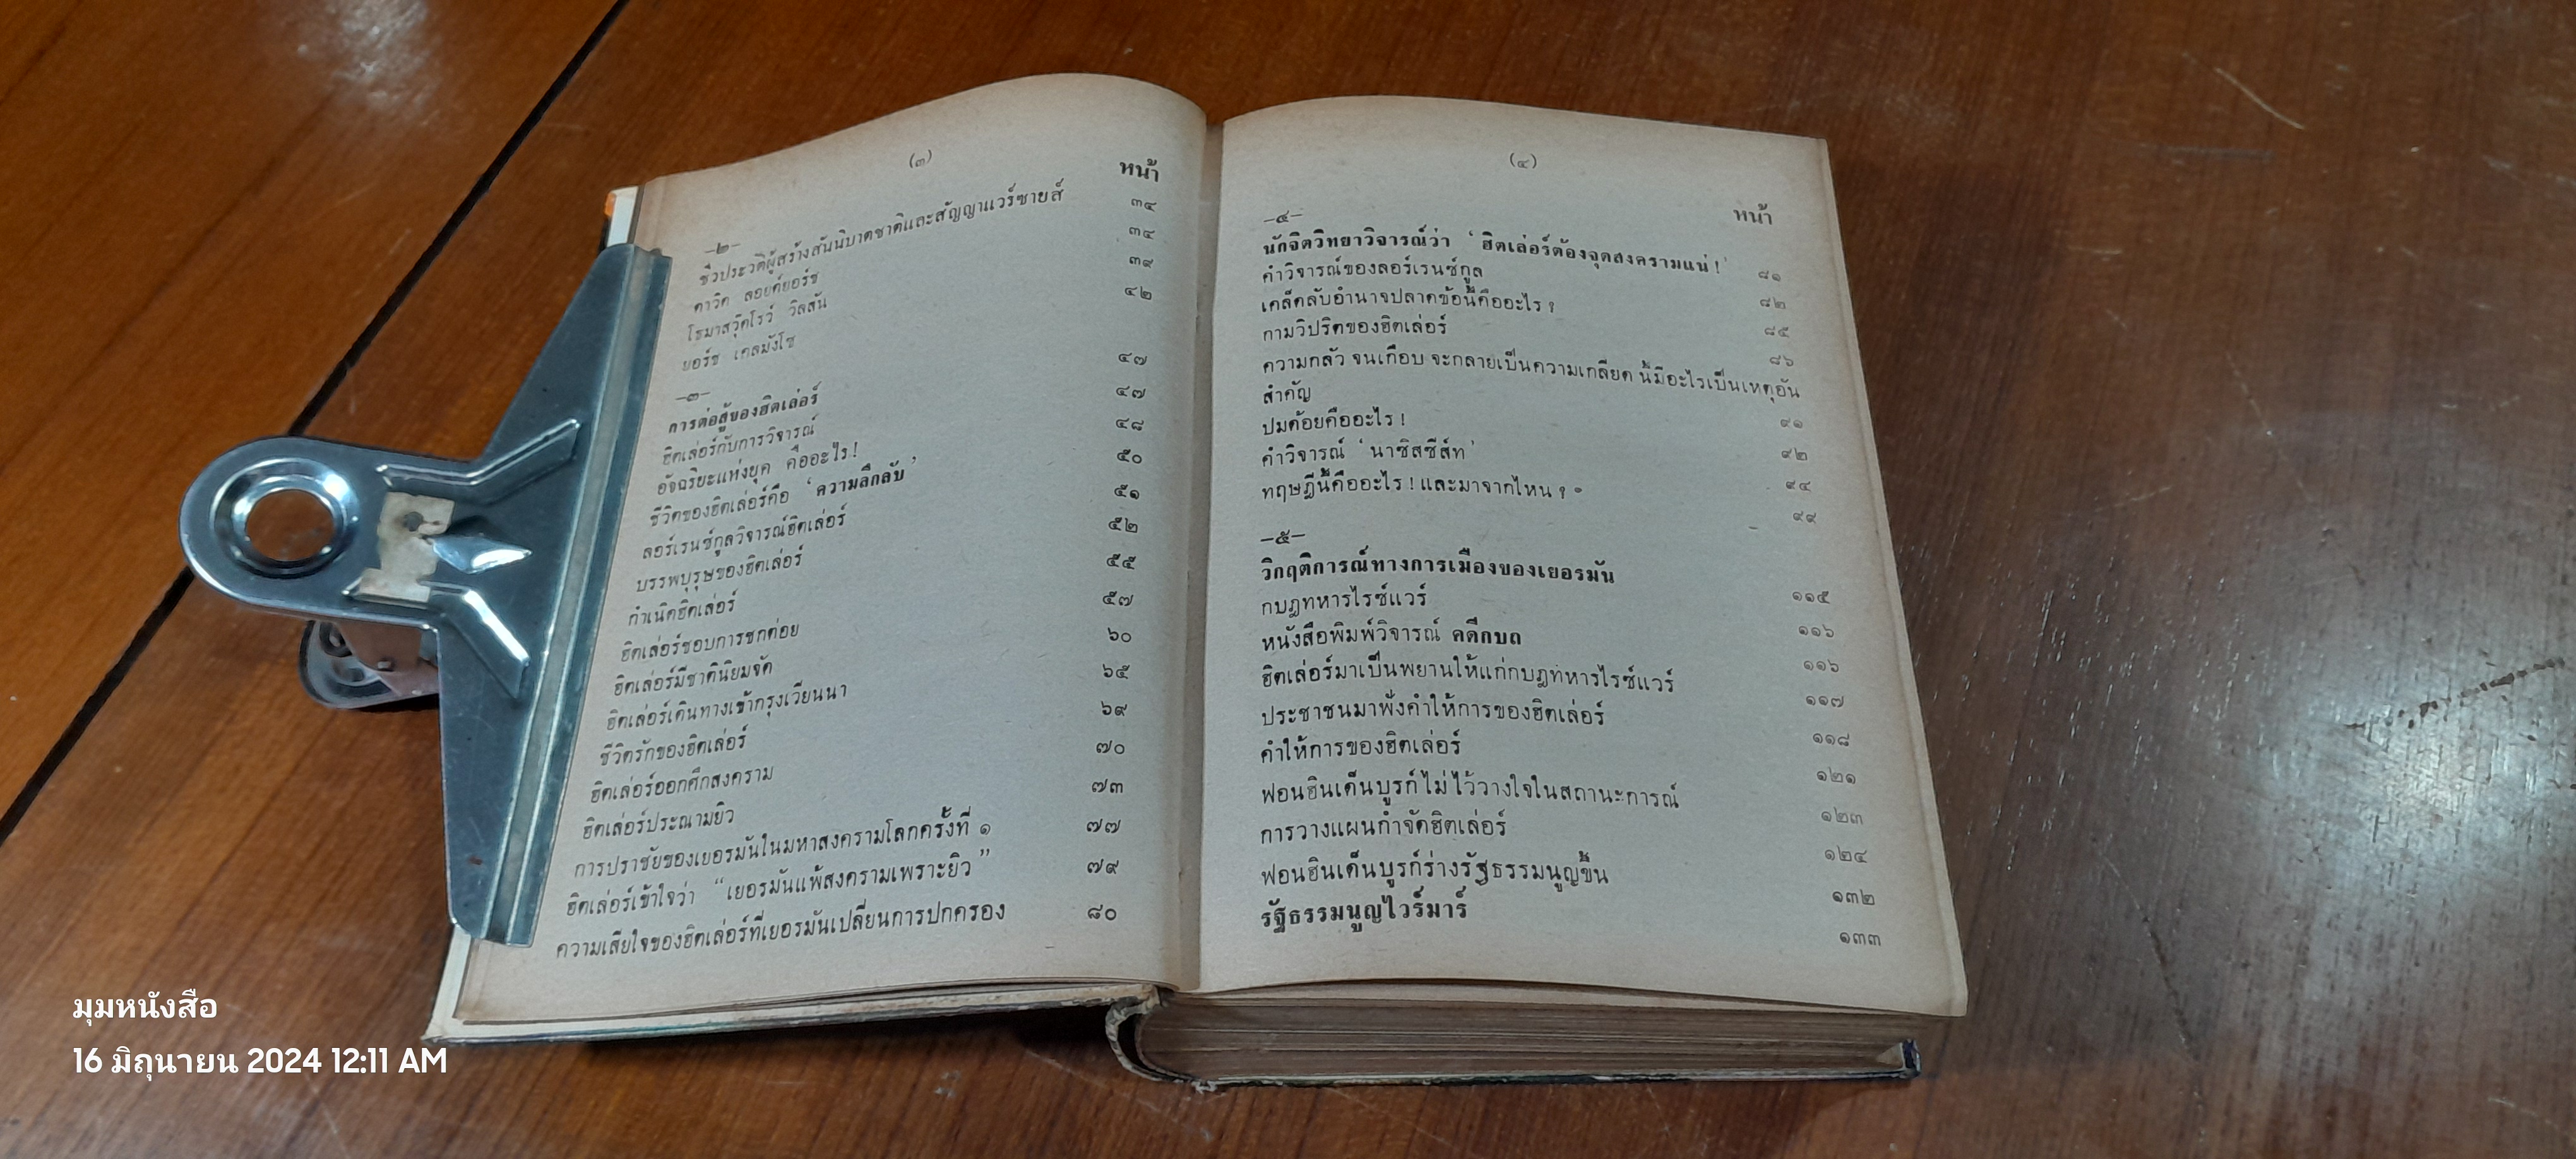 (๓)
หน้า
-๒-
ชีวประวัติผู้สร้างสันนิบาตชาติและสัญญาแวร์ซายส์ ๓๔
ดาวิด ลอยด์ยอร์ช ๓๔
โธมาสวู๊ดโรว์ วิลสัน ๓๙
ยอร์ช เคลมังโซ ๔๒
-๓-
การต่อสู้ของฮิตเล่อร์ ๔๗
ฮิตเล่อร์กับการวิจารณ์ ๔๗
อัจฉริยะแห่งยุค คืออะไร! ๔๘
ชีวิตของฮิตเล่อร์คือ ‘ความลึกลับ’ ๕๐
ลอร์เรนซ์กูลวิจารณ์ฮิตเล่อร์ ๕๑
บรรพบุรุษของฮิตเล่อร์ ๕๒
กำเนิดฮิตเล่อร์ ๕๕
ฮิตเล่อร์ชอบการชกต่อย ๕๗
ฮิตเล่อร์มีชาตินิยมจัด ๖๐
ฮิตเล่อร์เดินทางเข้ากรุงเวียนนา ๖๕
ชีวิตรักของฮิตเล่อร์ ๖๙
ฮิตเล่อร์ออกศึกสงคราม ๗๐
ฮิตเล่อร์ประณามยิว ๗๓
การปราชัยของเยอรมันในมหาสงครามโลกครั้งที่ ๑ ๗๗
ฮิตเล่อร์เข้าใจว่า “เยอรมันแพ้สงครามเพราะยิว” ๗๙
ความเสียใจของฮิตเล่อร์ที่เยอรมันเปลี่ยนการปกครอง ๘๐
(๔)
หน้า
-๔-
นักจิตวิทยาวิจารณ์ว่า ‘ฮิตเล่อร์ต้องจุดสงครามแน่!’ ๘๑
คำวิจารณ์ของลอร์เรนซ์กูล ๘๒
เคล็ดลับอำนาจปลาดข้อนี้คืออะไร? ๘๕
กามวิปริตของฮิตเล่อร์ ๘๖
ความกลัว จนเกือบ จะกลายเป็นความเกลียด นี้มีอะไรเป็นเหตุอัน
สำคัญ ๙๑
ปมด้อยคืออะไร! ๙๒
คำวิจารณ์ ‘นาซิสซีส์ท’ ๙๔
ทฤษฎีนี้คืออะไร! และมาจากไหน? ๙๙
-๕-
วิกฤติการณ์ทางการเมืองของเยอรมัน ๑๑๕
กบฏทหารไรซ์แวร์ ๑๑๖
หนังสือพิมพ์วิจารณ์ คดีกบถ ๑๑๖
ฮิตเล่อร์มาเป็นพยานให้แก่กบฏทหารไรซ์แวร์ ๑๑๗
ประชาชนมาฟังคำให้การของฮิตเล่อร์ ๑๑๘
คำให้การของฮิตเล่อร์ ๑๒๑
ฟอนฮินเด็นบูรก์ไม่ไว้วางใจในสถานะการณ์ ๑๒๓
การวางแผนกำจัดฮิตเล่อร์ ๑๒๔
ฟอนฮินเด็นบูรก์ร่างรัฐธรรมนูญขึ้น ๑๓๒
รัฐธรรมนูญไวร์มาร์ ๑๓๓
มุมหนังสือ
16 มิถุนายน 2024 12:11 AM